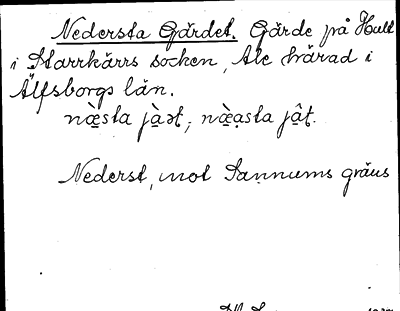 Nedersta Gärdet. Gärde på Hult
i Starrkärrs socken, Ale härad i
Älfsborgs län.
næ̀sta jæ̀ət; næ̀əsta jæ̂t.
Nederst, mot Sannums gräns